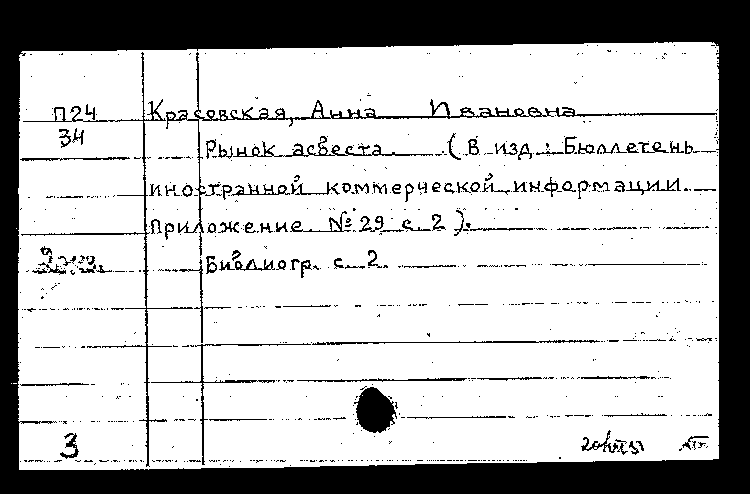 П24
34
Красовская, Анна Ивановна.
Рынок асбеста. (В изд.: Бюллетень
иностранной коммерческой информации.
Приложение. № 29 с. 2).
2 экз.
Библиогр. с. 2.
3